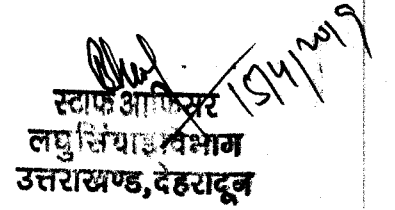 15/4/2019
स्टाफ आफिसर
लघु सिंचाई विभाग
उत्तराखण्ड, देहरादून